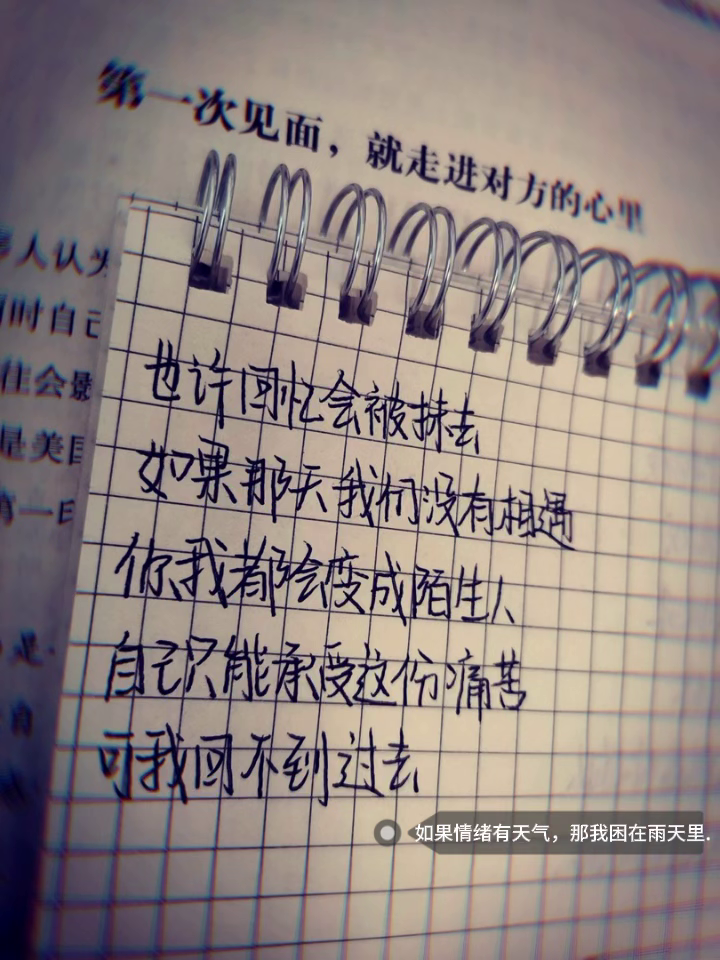 第一次见面，就走进对方的心里
人认为
时自己
往会影
是美国
第一日
是
自
也许回忆会被抹去
如果那天我们没有相遇
你我都会变成陌生人
自己只能承受这份痛苦
可我回不到过去
如果情绪有天气，那我困在雨天里.